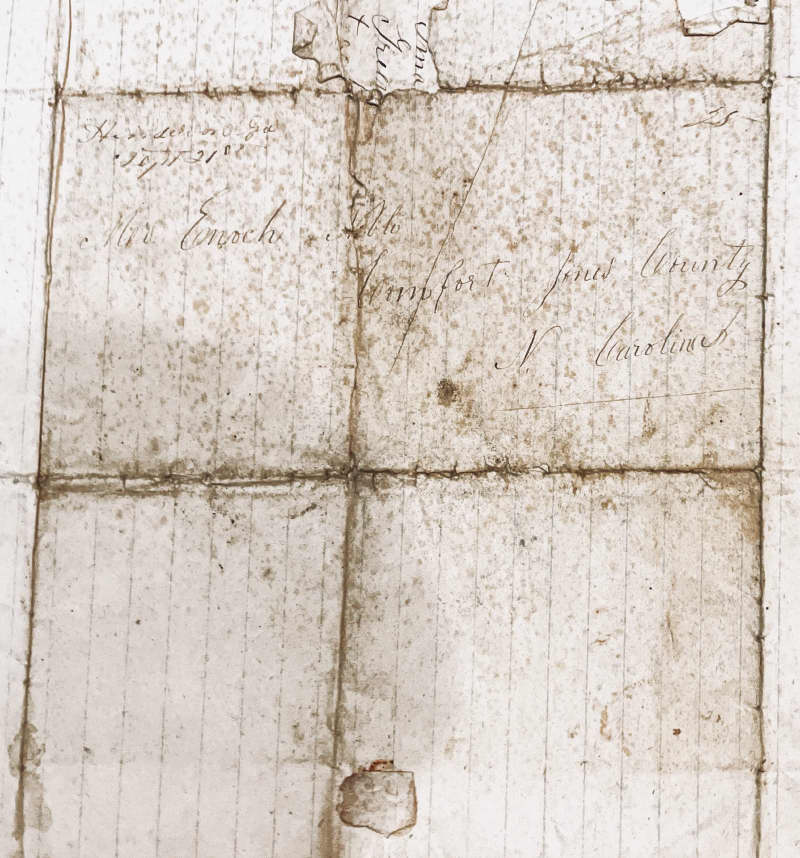 25
Henderson Ga
Sept 21st
Mr Enoch
Comfort Jones County
N Carolina